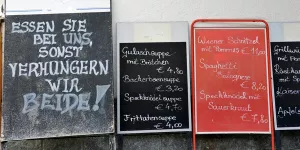 ESSEN SIE
BEI UNS,
SONST
VERHUNGERN
WIR
BEIDE!
Gulaschsuppe
mit Brötchen
€ 4,80
Backerbsensuppe
€ 3,20
Speckknödel suppe
€ 4,70
Frittatensuppe
€ 4,00
Wiener Schnitzel
mit Pommes €
Spaghetti
Bolognese
€ 8,20
Speckknödel mit
Sauerkraut
€ 7,80
mit
Kaiser
Apfel